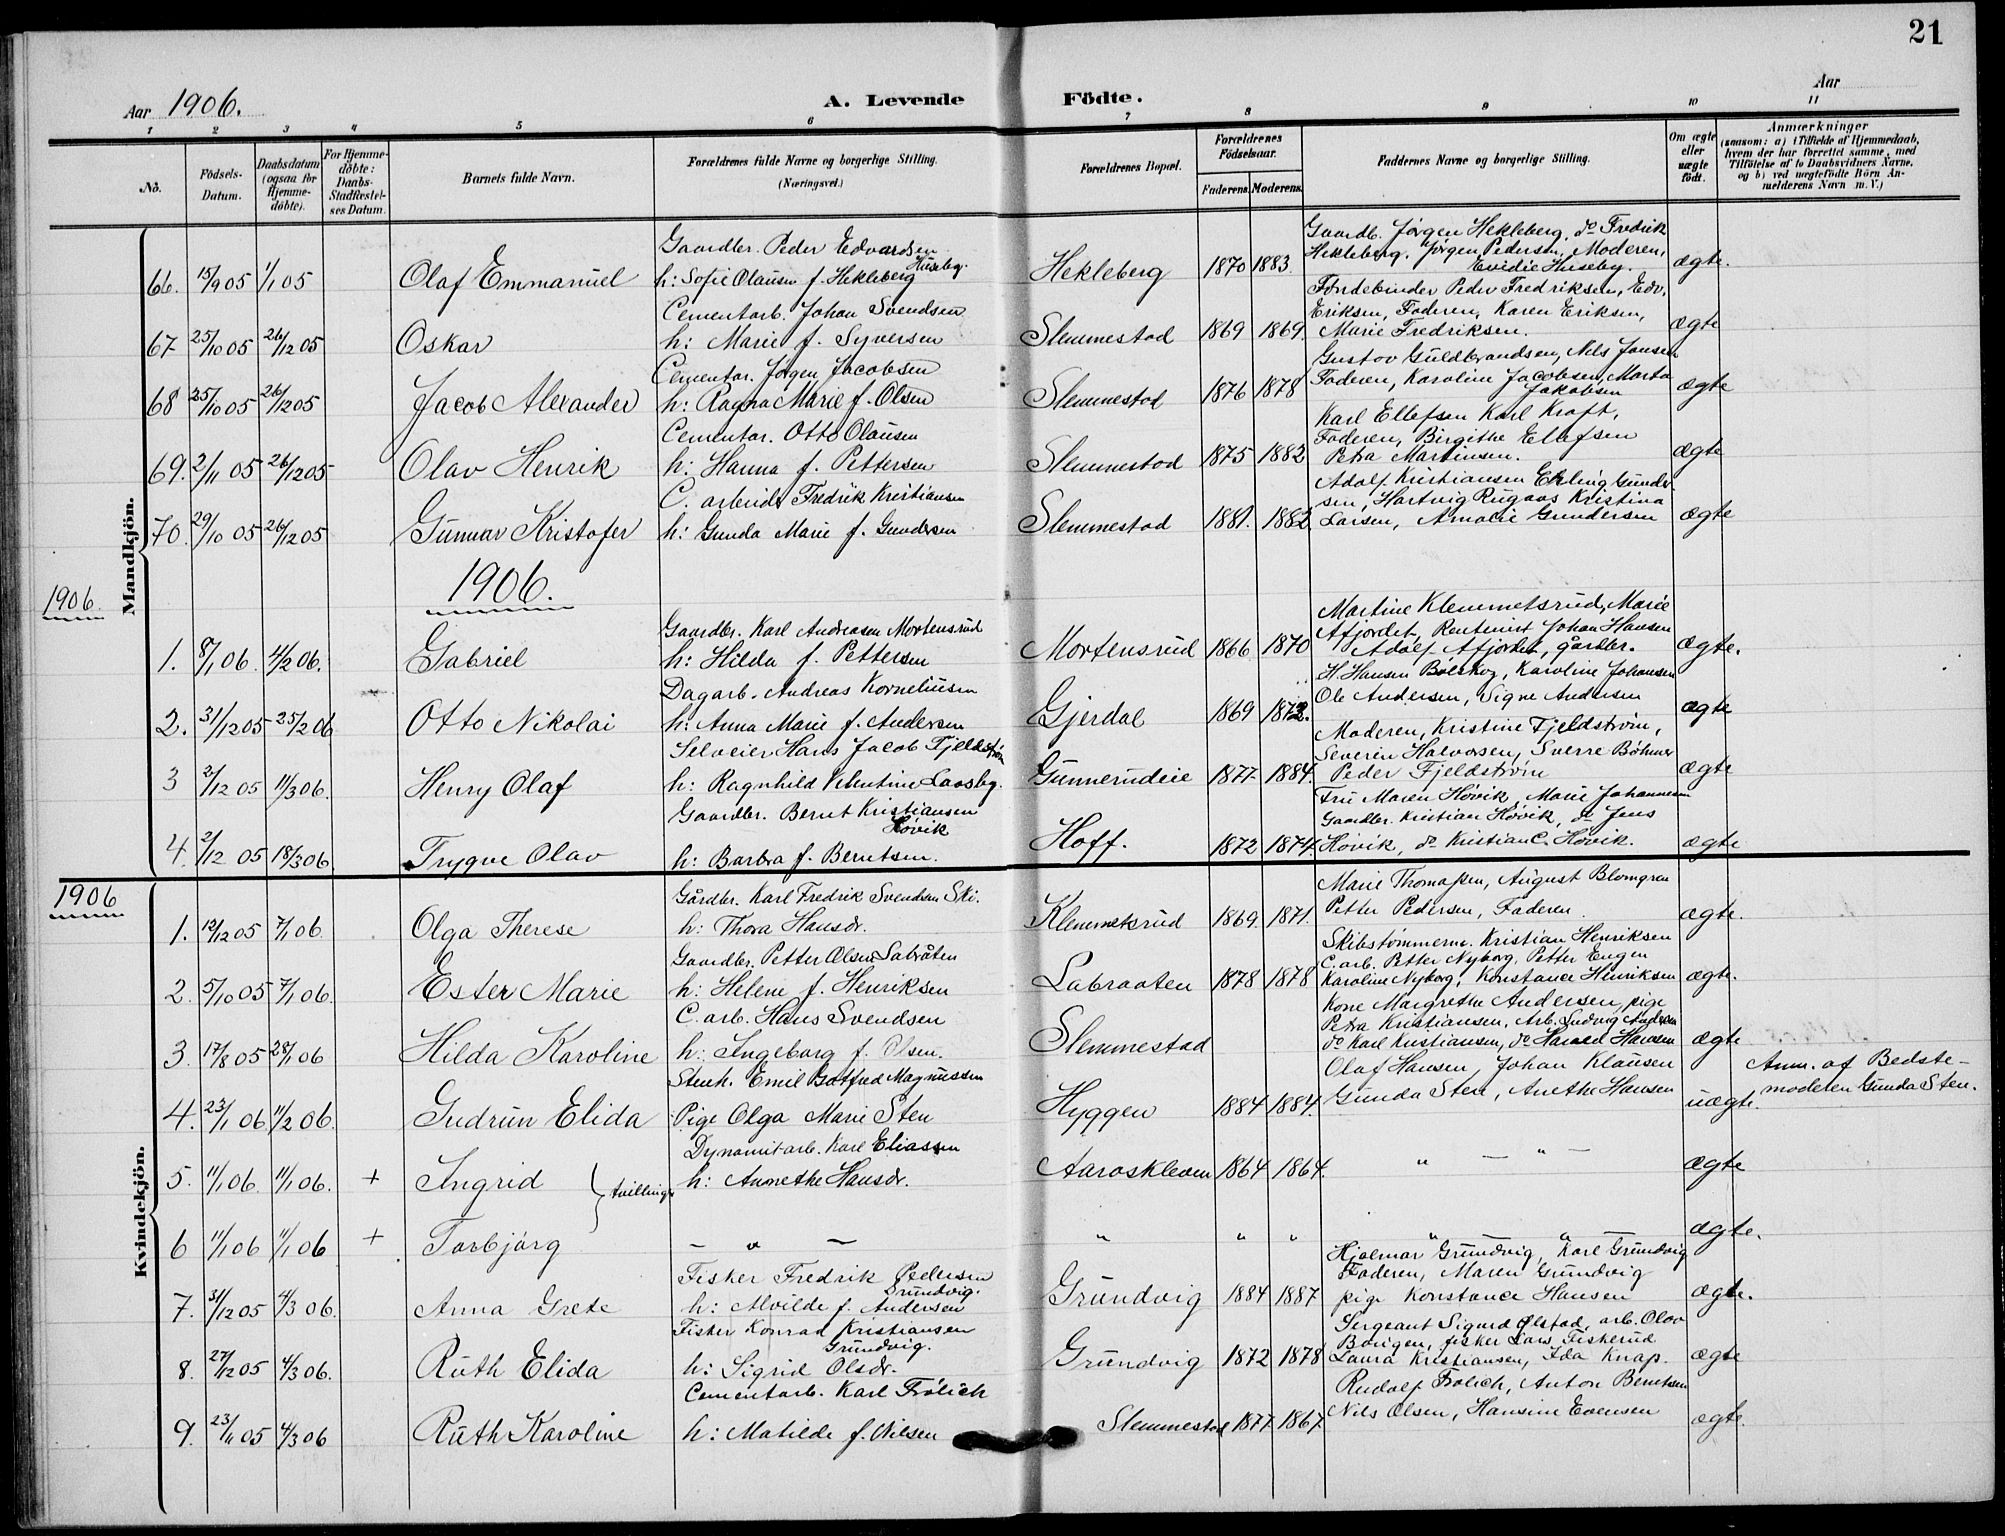 21
Aar 1906.
A. Levende Födte.
Aar
1 2 3 4 5 6 7 8 9 10 11
No.
Födsels-Datum.
Daabsdatum (ogsaa for Hjemmedöbte).
For Hjemmedöbte: Daabs-Stadfæstelses Datum.
Barnets fulde Navn.
Forældrenes fulde Navne og borgerlige Stilling. (Næringsvei.)
Forældrenes Bopæl.
Forældrenes Födselsaar.
Faderens. Moderens.
Faddernes Navne og borgerlige Stilling.
Om ægte eller uægte født.
Anmærkninger
(saasom: a) i Tilfælde af Hjemmedaab, hvem der har forrettet samme, med Tilföielse af to Daabsvidners Navne, og b) ved uægtefödte Börn Anmelderens Navn m. V.)
Mandkjön.
Gaardbr. Peder Edvardsen Huseby.
Gaardb. Jørgen Hekleberg, do Fredrik
Hekleberg, Jørgen Pedersen, Moderen,
Evidie Huseby.
66. 15/9 05 1/1 05 Olaf Emmanuel h: Sofie Olausen f. Hekleberg Hekleberg 1870 1883 ægte.
Cementarb. Johan Svendsen
Tøndebinder Peder Fredriksen, Edv.
Eriksen, Faderen, Karen Eriksen,
Marie Fredriksen.
67 25/10 05 26/12 05 Oskar h: Marie f. Syversen Slemmestad 1869 1869. ægte
Cementar. Jørgen Jacobsen
Gustav Guldbrandsen, Nils Jansen
Faderen, Karoline Jacobsen, Marta
Jakobsen
68 25/10 05 26/12 05 Jacob Alexander h: Ragna Marie f. Olsen Slemmestad 1876 1878 ægte
Cementar. Otto Olausen
Karl Ellefsen Karl Kraft,
Faderen, Birgithe Ellefsen
Petra Martinsen.
69. 2/11 05 26/12 05 Olav Henrik h: Hanna f. Pettersen Slemmestad 1875 1882 ægte
C. arbeider Fredrik Kristiansen
Adolf Kristiansen Erling Gunder-
sen, Hartvig Rugaas Kristina
Larsen, Amalie Gundersen
70. 29/10 05 26/12 05 Gunnar Kristofer h: Gunda Marie f. Gundersen Slemmestad 1881. 1882 ægte
1906.
1906.
Gaardbr. Karl Andreasen Mortensrud
Martine Klemmetsrud, Marie
Afjordet, Rentenist Johan Hansen
Adolf Afjordet, gårdbr.
1. 8/1 06. 4/2 06. Gabriel h: Hilda f. Pettersen Mortensrud 1866 1870 ægte.
Dagarb. Andreas Korneliusen
H. Hansen Bølstog, Karoline Johansen
Ole Andersen, Signe Andersen
2. 31/12 05 25/2 06 Otto Nikolai h: Anna Marie f. Andersen Gjerdal 1869 1872. ægte
Selveier Hans Jacob Fjeldstrøm
Moderen, Kristine Fjeldstrøm,
Severin Halvorsen, Sverre Böhmer
Peder Fjeldstrøm
3 2/12 05 11/3 06. Henry Olaf h: Ragnhild Velentine Laasby. Gunnerudeie 1877 1884. ægte
Gaardbr. Bernt Kristiansen Høvik
Fru Maren Høvik, Marie Johannesen
Gaardbr. Kristian Høvik, do Jens
Høvik, do Kristian C. Høvik.
4. 2/12 05 18/3 06. Trygve Olav h: Barbra f. Berntsen. Hoff. 1872 1874. ægte
1906
Kvindekjön.
Gårdbr. Karl Fredrik Svendsen Ski.
Marie Thomassen, August Blomgren
Petter Pedersen, Faderen.
1. 12/12 05 7/1 06. Olga Therese h: Thora Hansdr. Klemmetsrud 1869. 1871. ægte.
Gaardbr. Petter Olsen Labråten
Skibstømmerm. Kristian Henriksen
C. arb. Petter Nyborg, Petter Engen
Karoline Nyborg, Konstance Henriksen
2. 5/10 05 7/1 06. Ester Marie h: Helene f. Henriksen Labraaten 1878 1878 ægte.
C. arb. Hans Svendsen
Kone Margrethe Andersen, pige
Petra Kristiansen, Arb. Ludvig Andersen
do Karl Kristiansen, do Harald Hansen
3. 17/8 05 28/1 06 Hilda Karoline h: Ingeborg f. Olsen. Slemmestad ægte
Stenh. Emil Gotfred Magnussen
Olaf Hansen, Johan Klausen
Gunda Sten, Anethe Hansen
Anm. af Bedste-
moderen Gunda Sten.
4. 23/1 06 11/2 06. Gudrun Elida Pige Olga Marie Sten Hyggen 1884 1884. uægte.
Dynamitarb. Karl Eliassen
5. 11/1 06. 11/1 06. + Ingrid } tvillinger h: Annethe Hansdr. Aaroskleven 1864 1864. " — " — ægte
6 11/1 06 11/1 06 + Torbjørg — " — " " " " — " — ægte.
Fisker Fredrik Pedersen Grundvig.
Hjalmar Grundvig, Karl Grundvig
Faderen, Maren Grundvig
pige Konstance Hansen
7. 31/12 05 4/3 06. Anna Grete h: Alvilde f. Andersen Grundvig 1884 1887 ægte.
Fisker Konrad Kristiansen Grundvig.
Sergeant Sigurd Ølstad, arb. Olav
Børigen, fisker Lars Fiskerud
Laura Kristiansen, Ida Knap.
8. 27/12 05 4/3 06. Ruth Elida h: Sigrid Olsdr. Grundvig 1872 1878 ægte
Cementarb. Karl Frölich
Rudolf Frölich, Anton Berntsen
Nils Olsen, Hansine Evensen
9. 23/11 05 4/3 06 Ruth Karoline h: Matilde f. Nilsen Slemmestad 1877 1867. ægte.